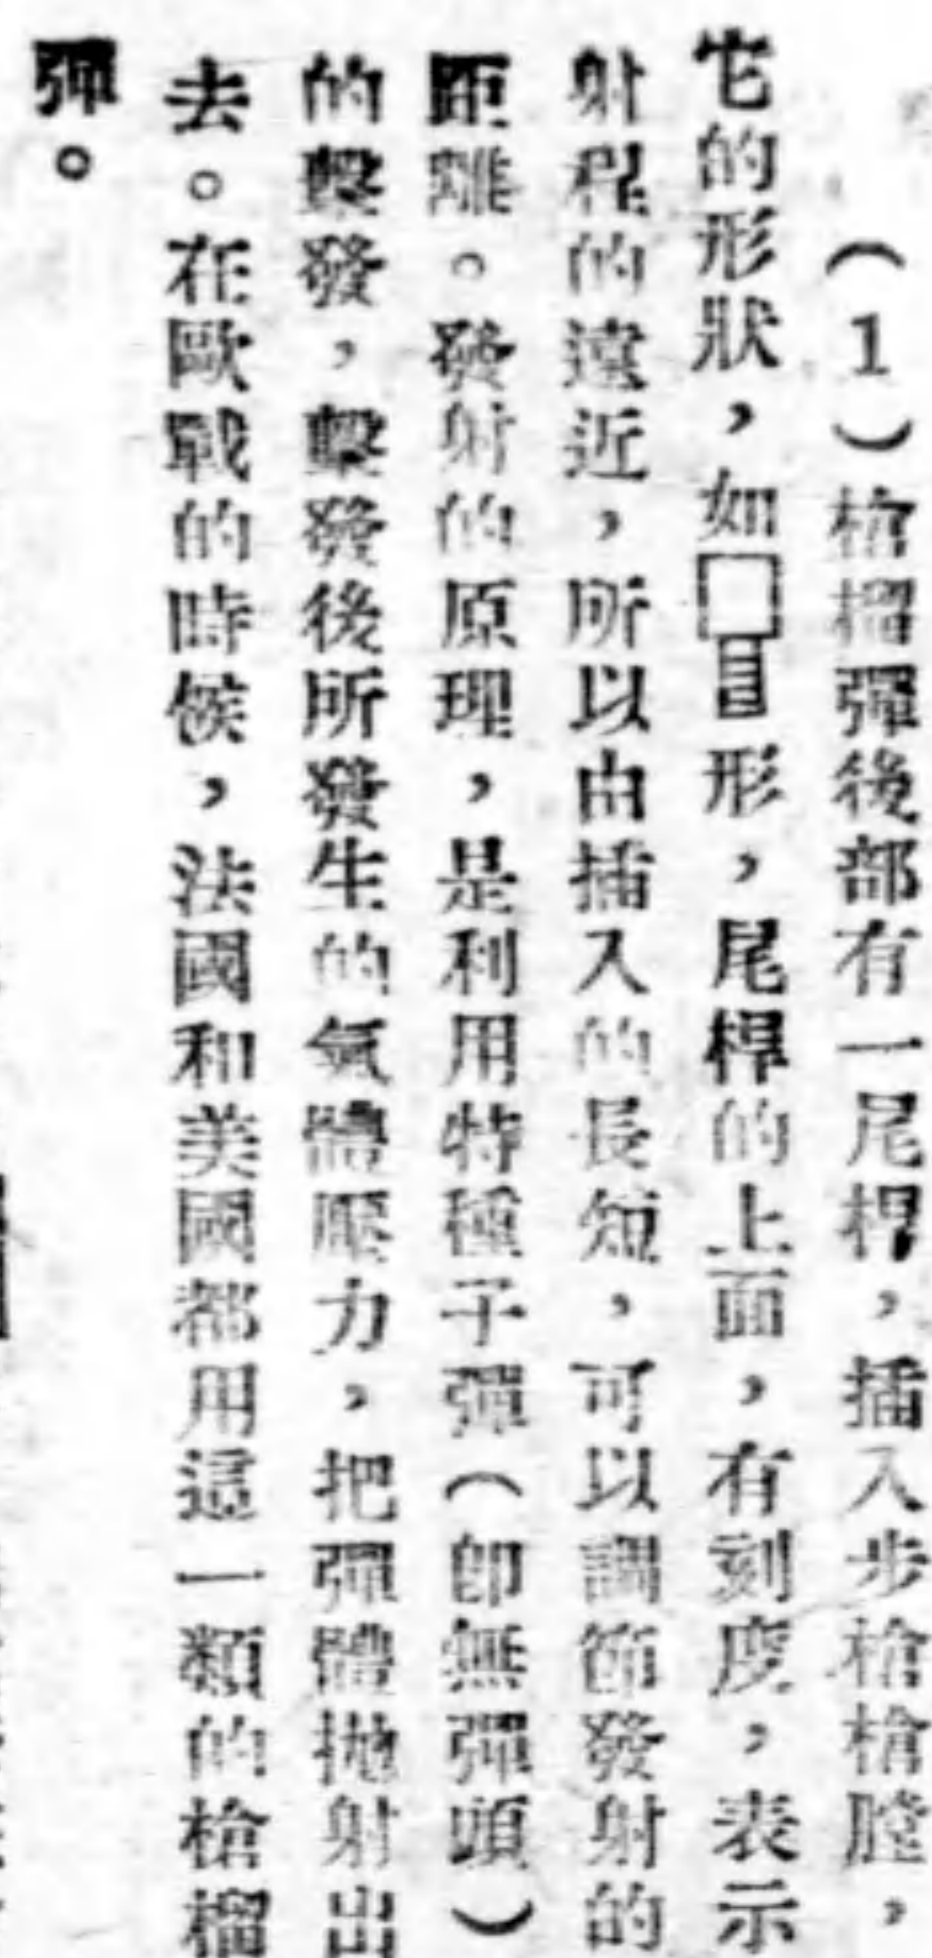 （1）槍榴彈後部有一尾桿，插入步槍槍膛，
它的形狀，如形，尾桿的上面，有刻度，表示
射程的遠近，所以由插入的長短，可以調節發射的
距離。發射的原理，是利用特種子彈（卽無彈頭）
的擊發，擊發後所發生的氣體壓力，把彈體拋射出
去。在歐戰的時候，法國和美國都用這一類的槍榴
彈。